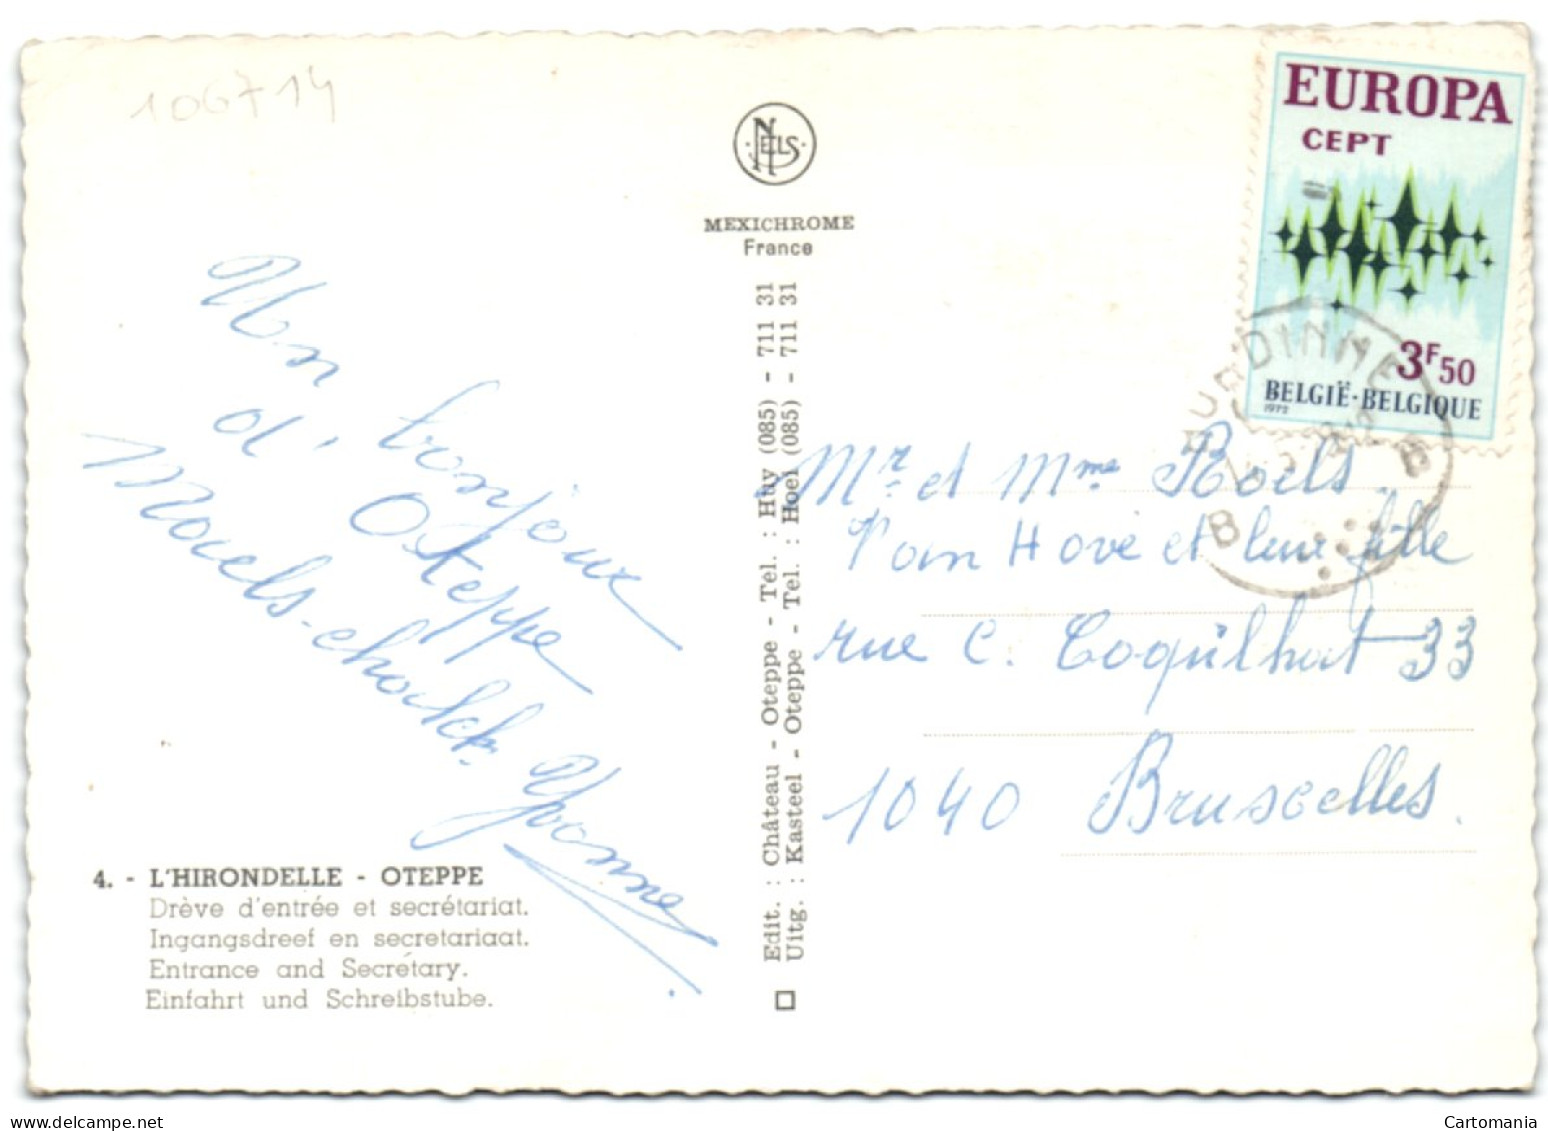 106714
NELS
MEXICHROME
France
EUROPA
CEPT
3F50
BELGIË-BELGIQUE
1972
BURDINNE
B B
Un bonjour
d'Oteppe
Yvonne
Mr et Mme Roels.
Van Hove et leur fille
rue C. Coquilhat 33
1040 Bruxelles.
Edit. : Château - Oteppe - Tel. : Huy (085) - 711 31
Uitg. : Kasteel - Oteppe - Tel. : Hoei (085) - 711 31
4. - L'HIRONDELLE - OTEPPE
Drève d'entrée et secrétariat.
Ingangsdreef en secretariaat.
Entrance and Secretary.
Einfahrt und Schreibstube.
Cartomania
www.delcampe.net